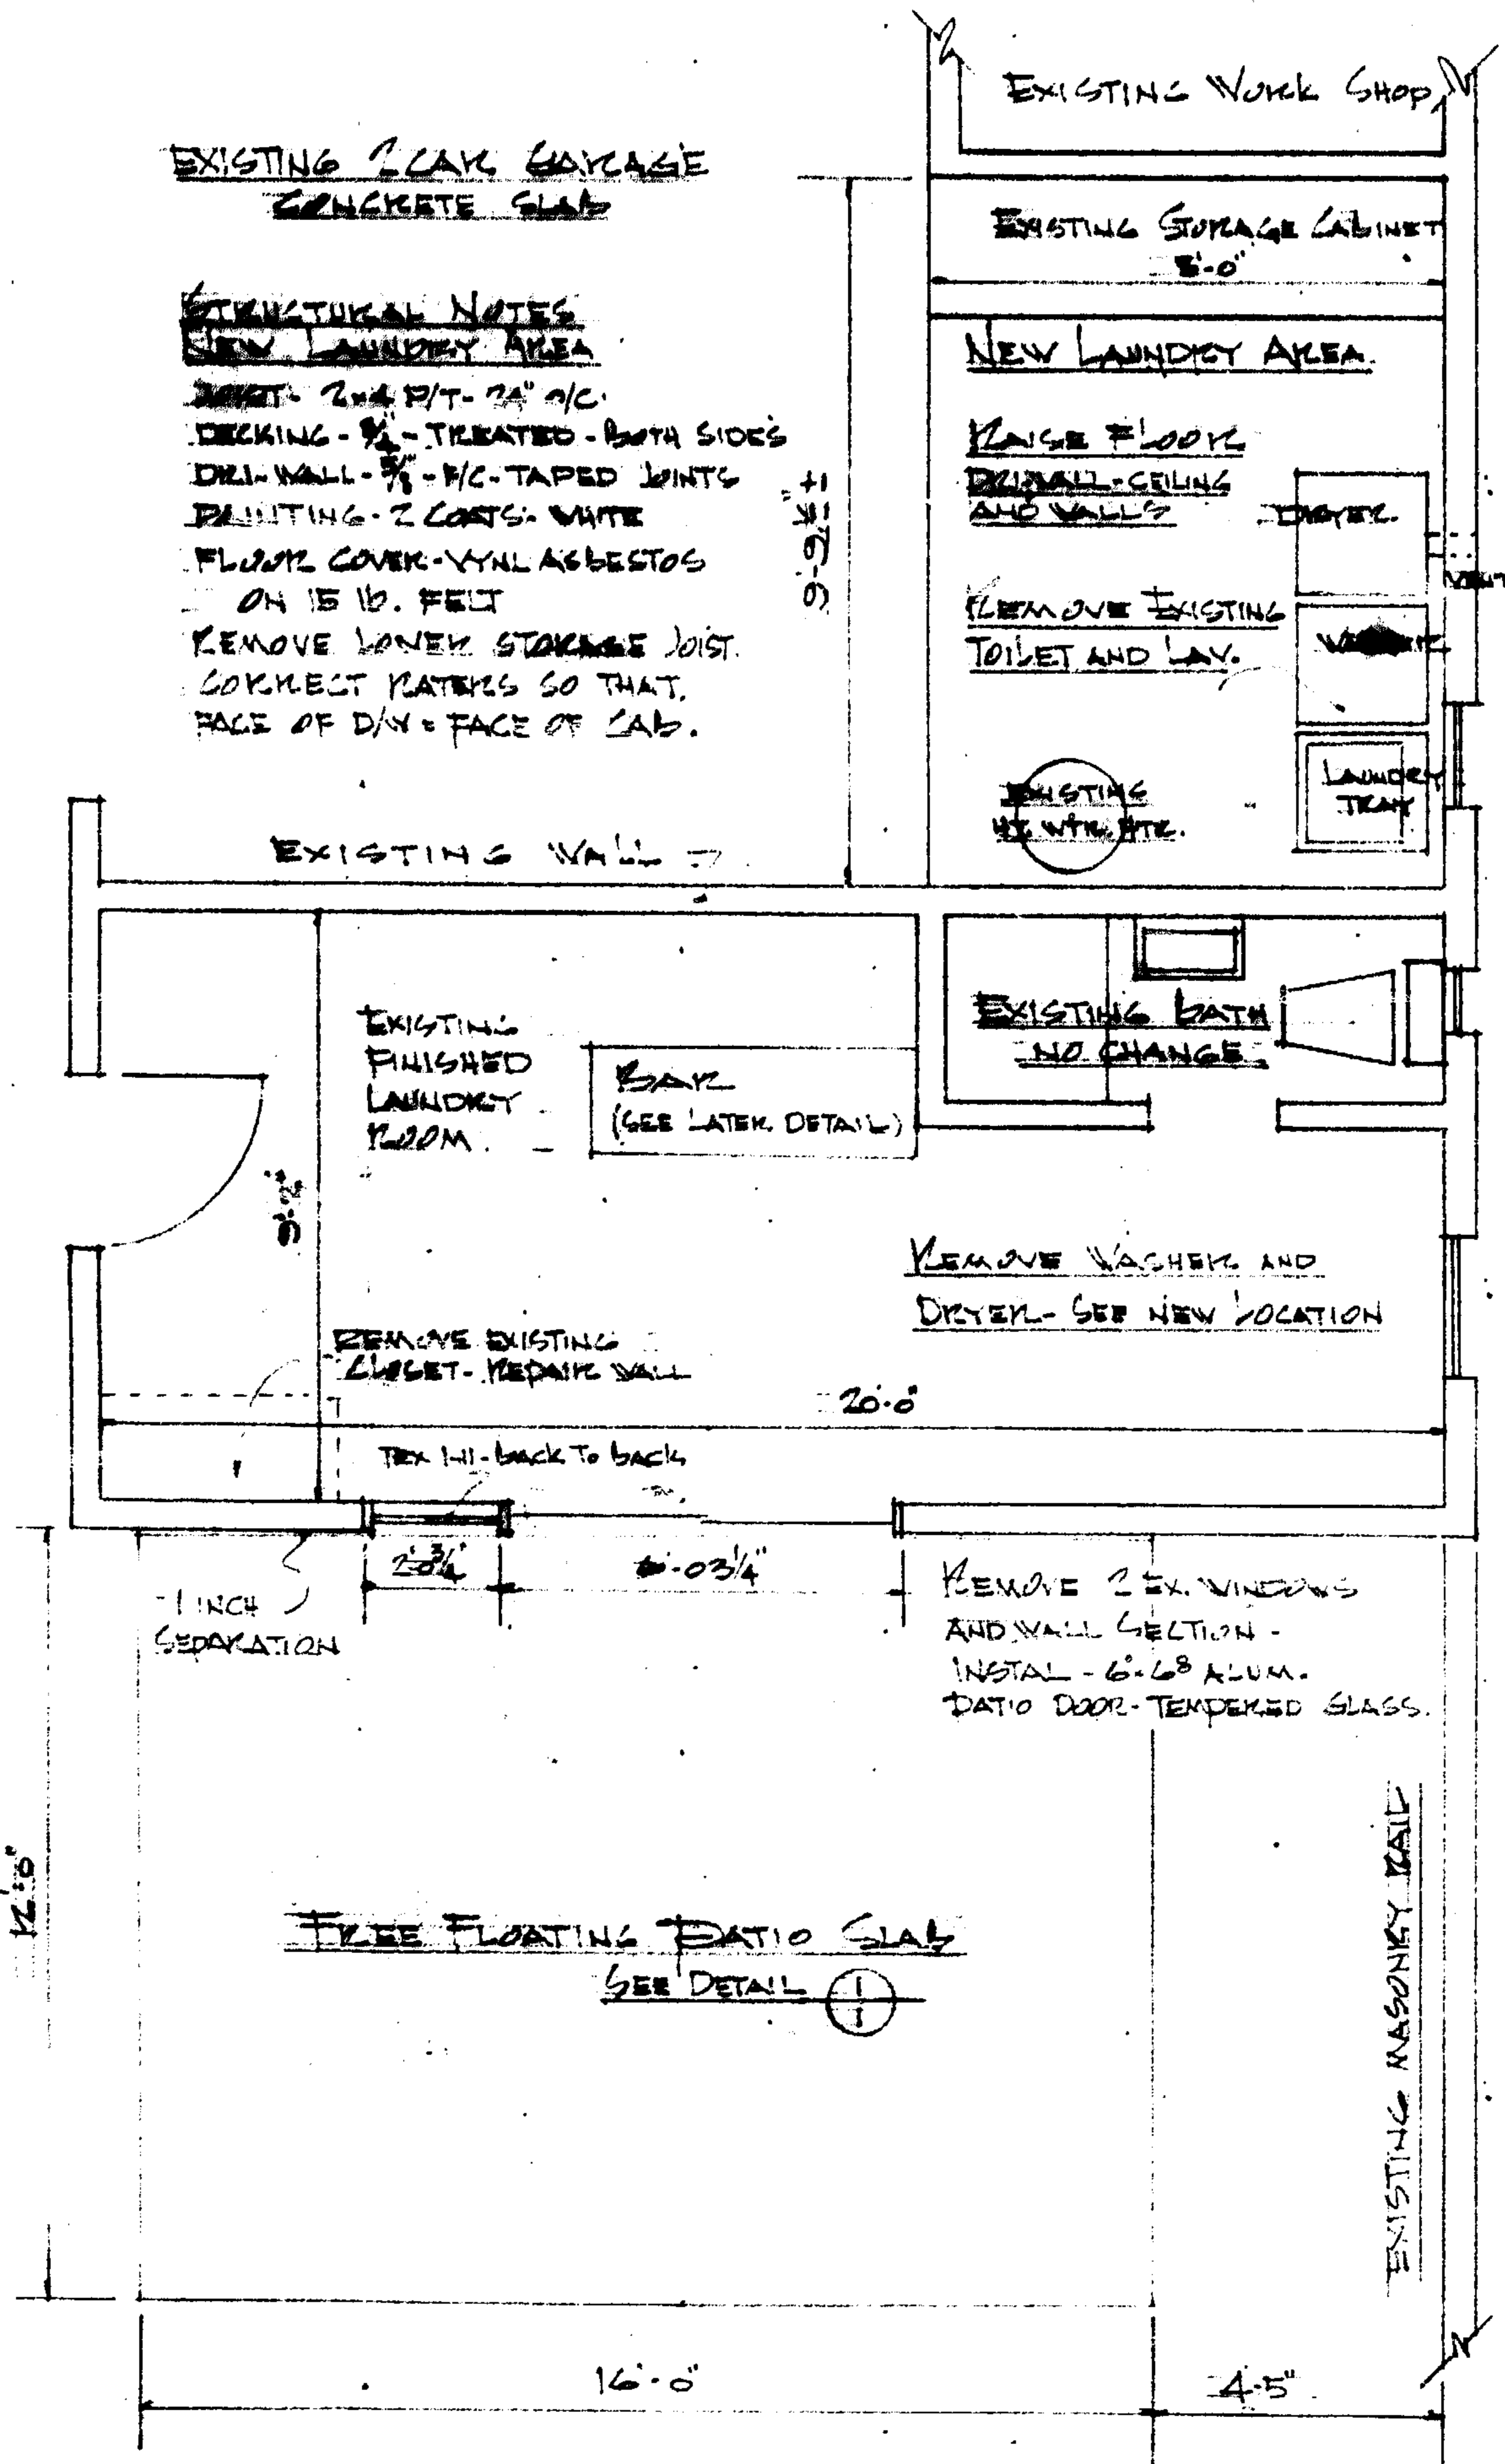 EXISTING WORK SHOP
EXISTING 2 CAR GARAGE
CONCRETE SLAB
EXISTING STORAGE CABINET
STRUCTURAL NOTES
NEW LAUNDRY AREA
2x4 P/T - 24" O/C.
DECKING - 3/4" - TREATED - BOTH SIDES
DRI-WALL - 5/8" - F/C - TAPED JOINTS
PAINTING - 2 COATS - WHITE
FLOOR COVER - VYNL ASBESTOS
ON 15 lb. FELT
REMOVE LOWER STORAGE JOIST.
CORRECT RATERS SO THAT.
FACE OF D/W = FACE OF CAB.
NEW LAUNDRY AREA
RAISE FLOOR
DRIWALL - CEILING
AND WALLS
DRYER.
VENT
REMOVE EXISTING
TOILET AND LAV.
LAUNDRY
TRAY
EXISTING
WTR. HTR.
EXISTING WALL
EXISTING
FINISHED
LAUNDRY
ROOM.
BAR
(SEE LATER DETAIL)
EXISTING BATH
NO CHANGE
9'-2"
REMOVE WASHER AND
DRYER - SEE NEW LOCATION
REMOVE EXISTING
CLOSET - REPAIR WALL
20'-0"
TEX 1-11 - BACK TO BACK
2'-0 3/4"
-03/4"
1 INCH
SEPARATION
REMOVE 2 EX. WINDOWS
AND WALL SECTION -
INSTAL - 6°-6⁸ ALUM.
PATIO DOOR - TEMPERED GLASS.
12'-0"
EXISTING MASONRY RAIL
FREE FLOATING PATIO SLAB
SEE DETAIL 1
1
16'-0"
4-5"